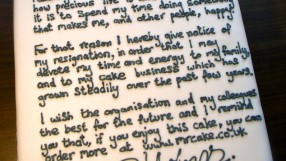 how precious life is
it is to spend my time doing something
that makes me, and other people, happy
For that reason I hereby give notice of
my resignation, in order that I may
devote my time and energy to my family,
and to my cake business which has
grown steadily over the past few years.
I wish the organisation and my colleagues
the best for the future and I remind
you that, if you enjoy this cake, you can
order more at www.mrcake.co.uk